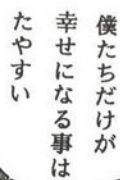 僕たちだけが
幸せになる事は
たやすい